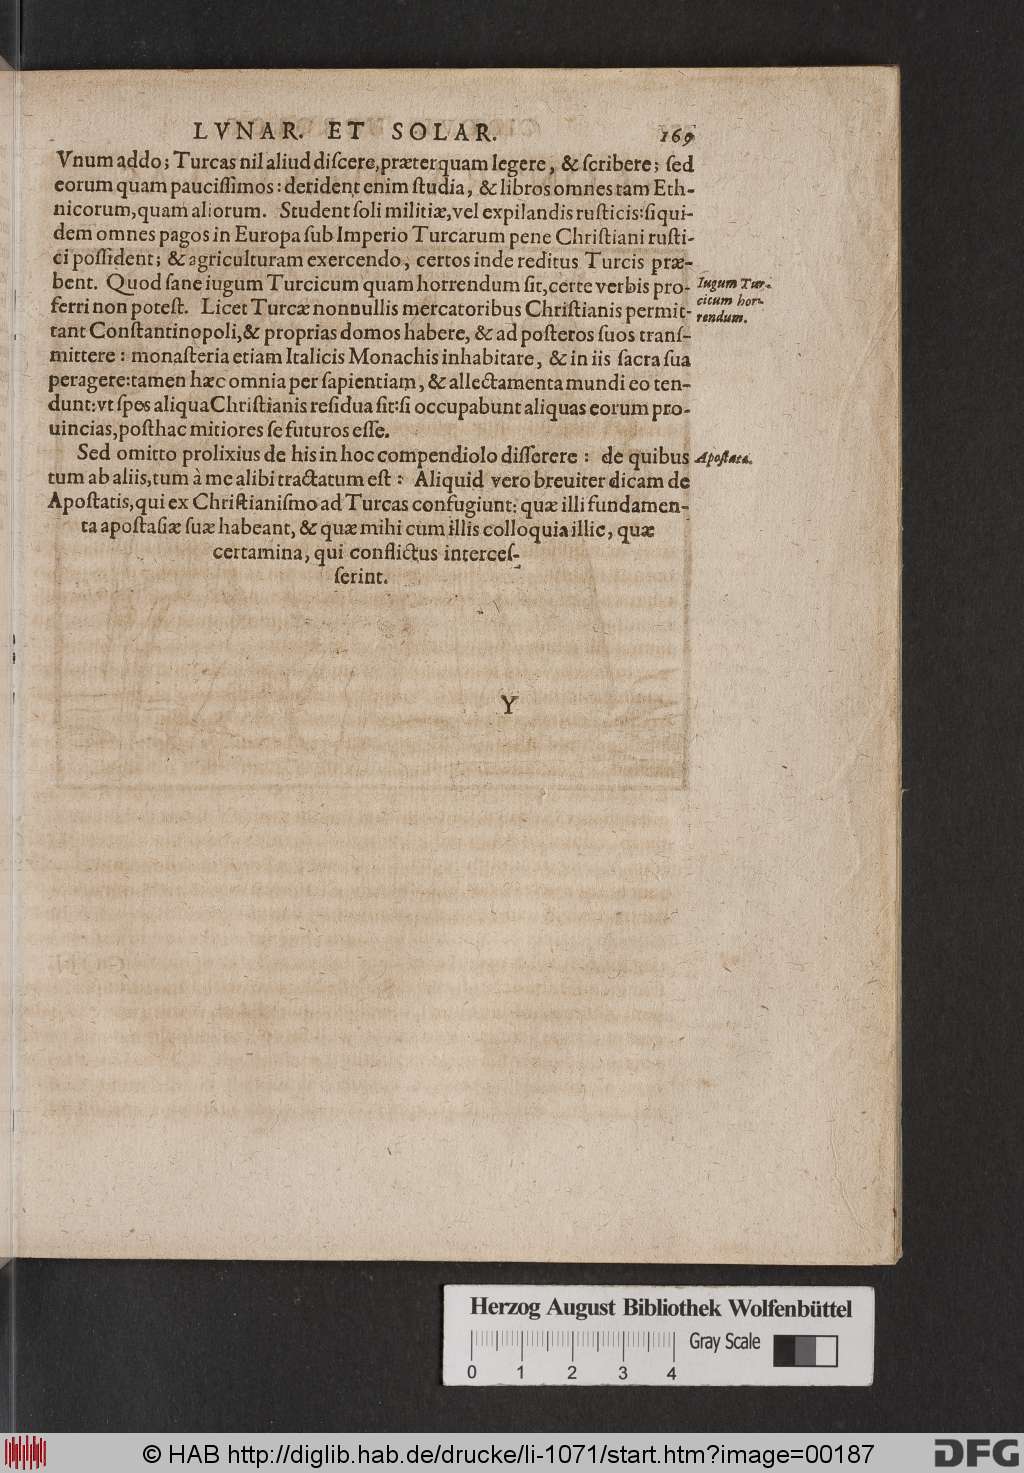 LVNAR. ET SOLAR. 169
Vnum addo; Turcas nil aliud diſcere, præterquam legere, & ſcribere; ſed
eorum quam pauciſſimos: derident enim ſtudia, & libros omnes tam Eth-
nicorum, quam aliorum. Student ſoli militiæ, vel expilandis ruſticis: ſiqui-
dem omnes pagos in Europa ſub Imperio Turcarum pene Chriſtiani ruſti-
ci poſſident; & agriculturam exercendo, certos inde reditus Turcis præ-
bent. Quod ſane iugum Turcicum quam horrendum ſit, certe verbis pro-
ferri non poteſt. Licet Turcæ nonnullis mercatoribus Chriſtianis permit-
tant Conſtantinopoli, & proprias domos habere, & ad poſteros ſuos tranſ-
mittere: monaſteria etiam Italicis Monachis inhabitare, & in iis ſacra ſua
peragere: tamen hæc omnia per ſapientiam, & allectamenta mundi eo ten-
dunt: vt ſpes aliqua Chriſtianis reſidua ſit: ſi occupabunt aliquas eorum pro-
uincias, poſthac mitiores ſe futuros eſſe.
Iugum Tur-
cicum hor-
rendum.
Sed omitto prolixius de his in hoc compendiolo diſſerere: de quibus
tum ab aliis, tum à me alibi tractatum eſt: Aliquid vero breuiter dicam de
Apoſtatis, qui ex Chriſtianiſmo ad Turcas confugiunt: quæ illi fundamen-
ta apoſtaſiæ ſuæ habeant, & quæ mihi cum illis colloquia illic, quæ
certamina, qui conflictus interceſ-
ſerint.
Apoſtatæ.
Y
Herzog August Bibliothek Wolfenbüttel
Gray Scale
0 1 2 3 4
© HAB http://diglib.hab.de/drucke/li-1071/start.htm?image=00187
DFG